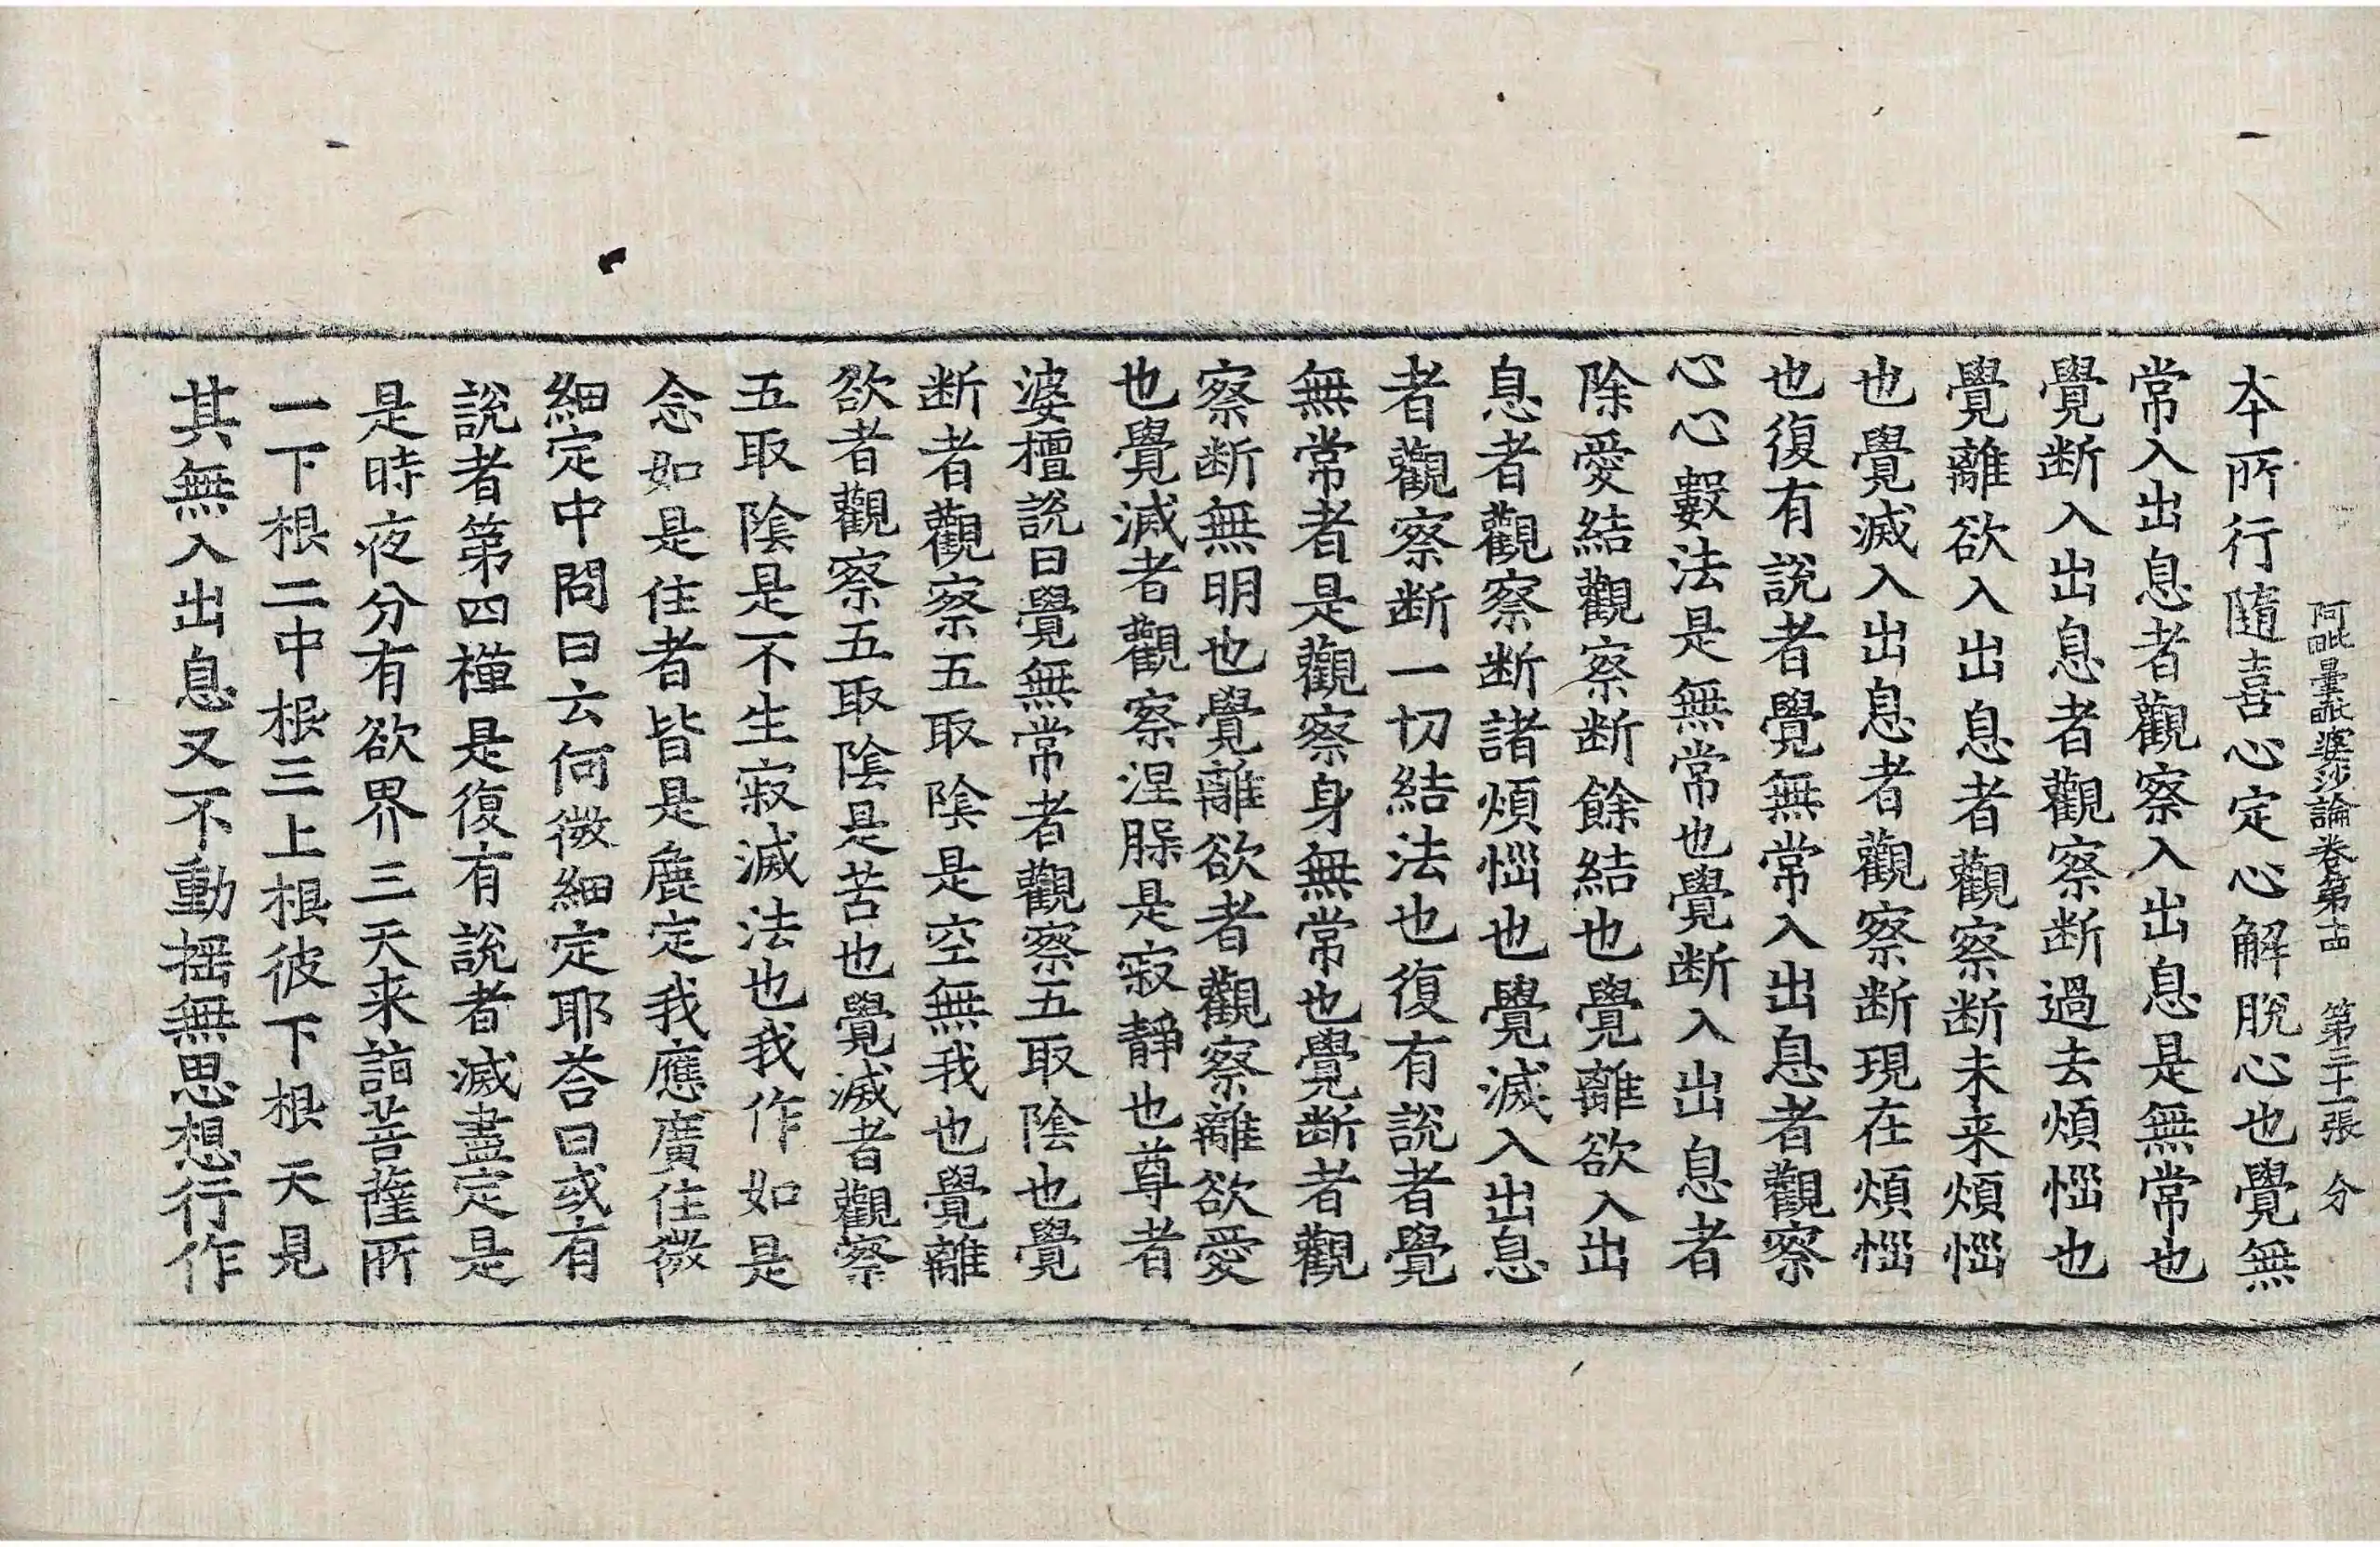 阿毗曇毗婆沙論卷第十四 第二十二張 分
夲所行隨喜心定心解脫心也覺無
常入出息者觀察入出息是無常也
覺断入出息者觀察断過去煩惱也
覺離欲入出息者觀察断未来煩惱
也覺滅入出息者觀察断現在煩惱
也復有說者覺無常入出息者觀察
心心數法是無常也覺断入出息者
除愛結觀察断餘結也覺離欲入出
息者觀察断諸煩惱也覺滅入出息
者觀察断一切結法也復有說者覺
無常者是觀察身無常也覺断者觀
察断無明也覺離欲者觀察離欲愛
也覺滅者觀察涅槃是寂靜也尊者
婆檀說曰覺無常者觀察五取陰也覺
断者觀察五取陰是空無我也覺離
欲者觀察五取陰是苦也覺滅者觀察
五取陰是不生寂滅法也我作如是
念如是住者皆是麁定我應廣住微
細定中問曰云何微細定耶荅曰或有
說者第四禪是復有說者滅盡定是
是時夜分有欲界三天来詣菩薩所
一下根二中根三上根彼下根天見
其無入出息又不動揺無思想行作